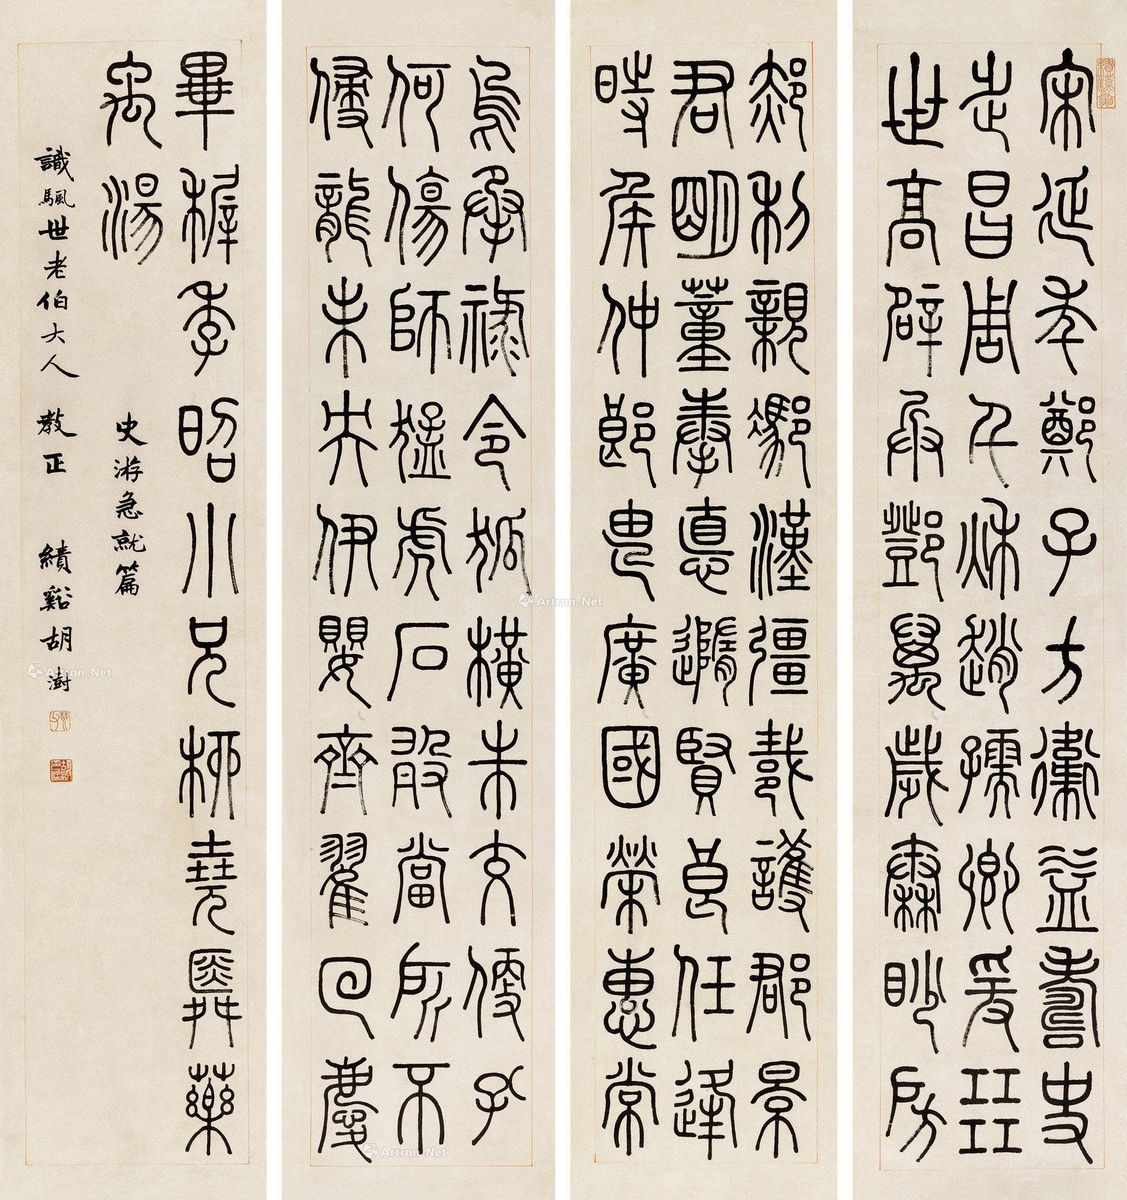 宋延年鄭子方衛益壽史
步昌周千秋趙孺卿爰㠭
世高辟兵鄧萬歲秦眇房
郝利親馮漢彊戴護郡景
君明董奉悳隨賢良任逢
時矦仲郎由廣國榮惠常
烏承祿令狐橫朱交便孔
何傷師猛虎石敢當所不
侵龍未央伊嬰齊翟回慶
畢稺季昭小兄柳堯舜藥
禹湯
史游急就篇
識颿世老伯大人 教正 績谿胡澍
Artron.Net
Artron.Net
Artron.Net